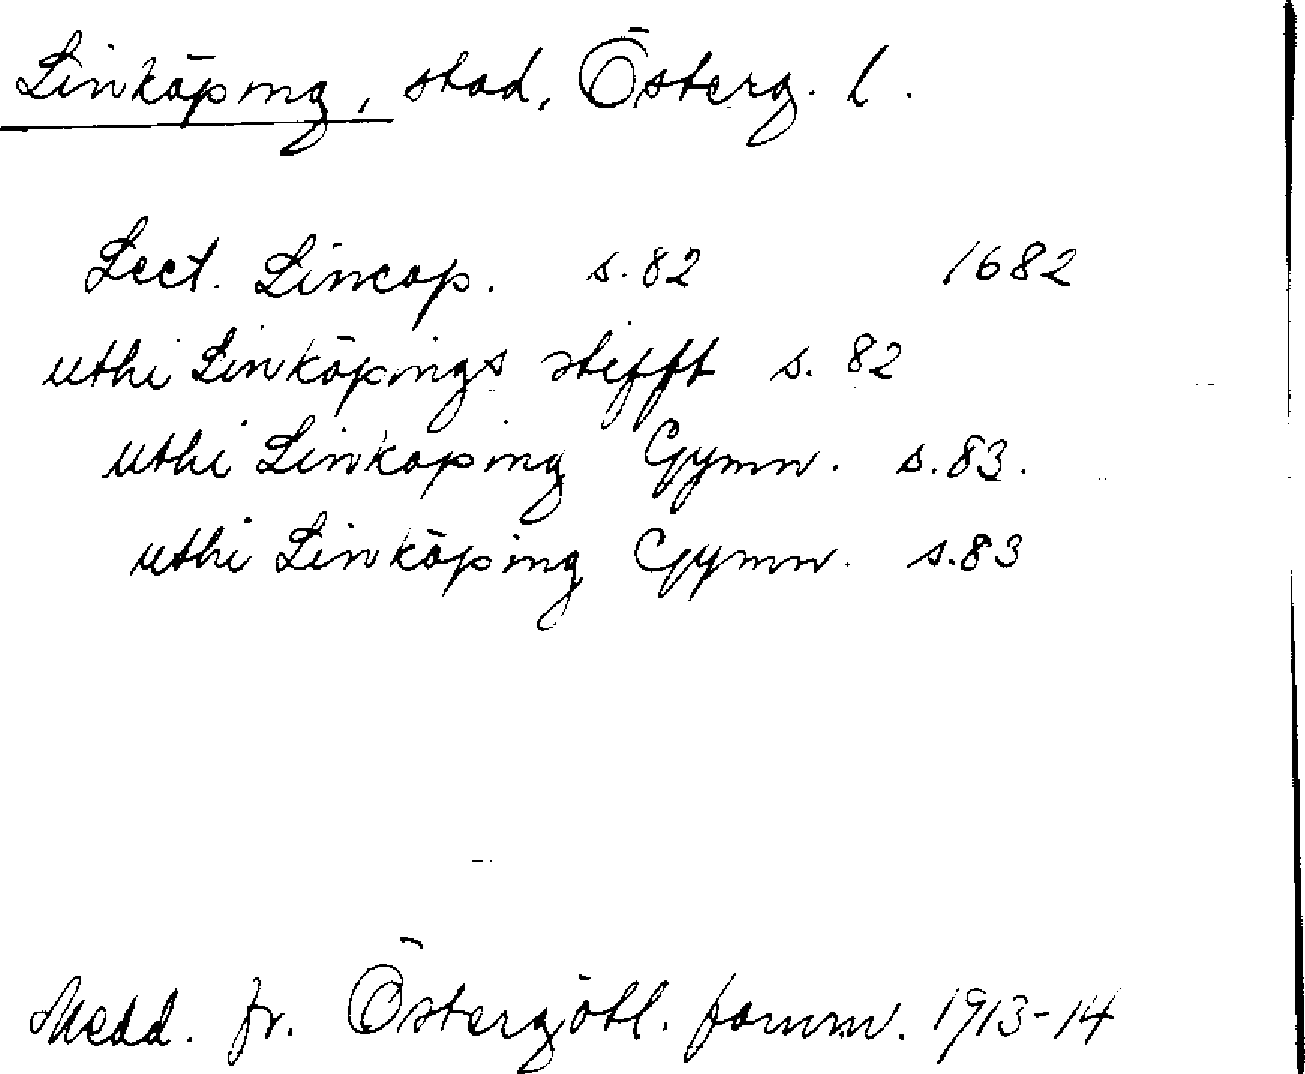 Linköping, stad, Österg. l.
Lect. Lincop. s. 82 1682
uthi Linköpings stifft s. 82
uthi Linköping Gymn. s. 83.
uthi Linköping Gymn. s. 83
Medd. fr. Östergötl. fornm. 1913-14